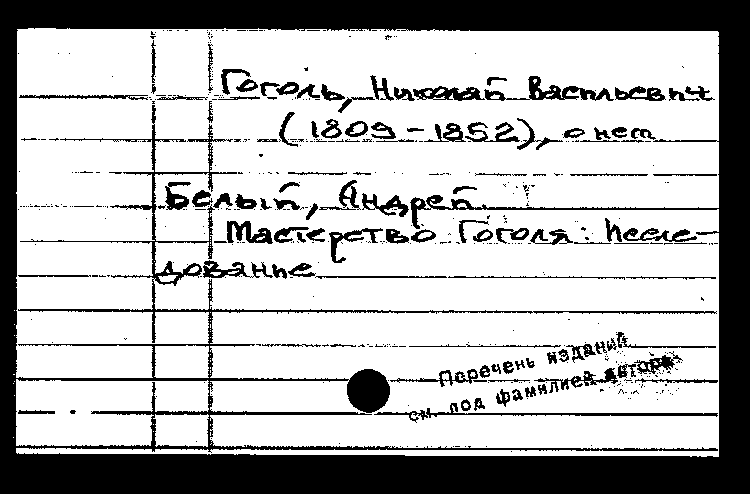 Гоголь, Николай Васильевич
(1809-1852), о нем
Белый, Андрей.
Мастерство Гоголя: Иссле-
дование
Перечень изданий
см. под фамилией автора